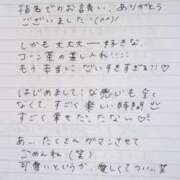 指名でのお誘い、ありがとう
ございました(^^)
しかも大大大──好きな、
コーン茶の差し入れ!!!
もう本当にごいすぎすぎる?!♡
はじめまして!な感じも全く
なくて、すごく楽しい時間♡
すごく幸せでたない♡
あ、たくさんガマンさせて
ごめんね(笑)
可愛いというか、愛しくてつい、笑